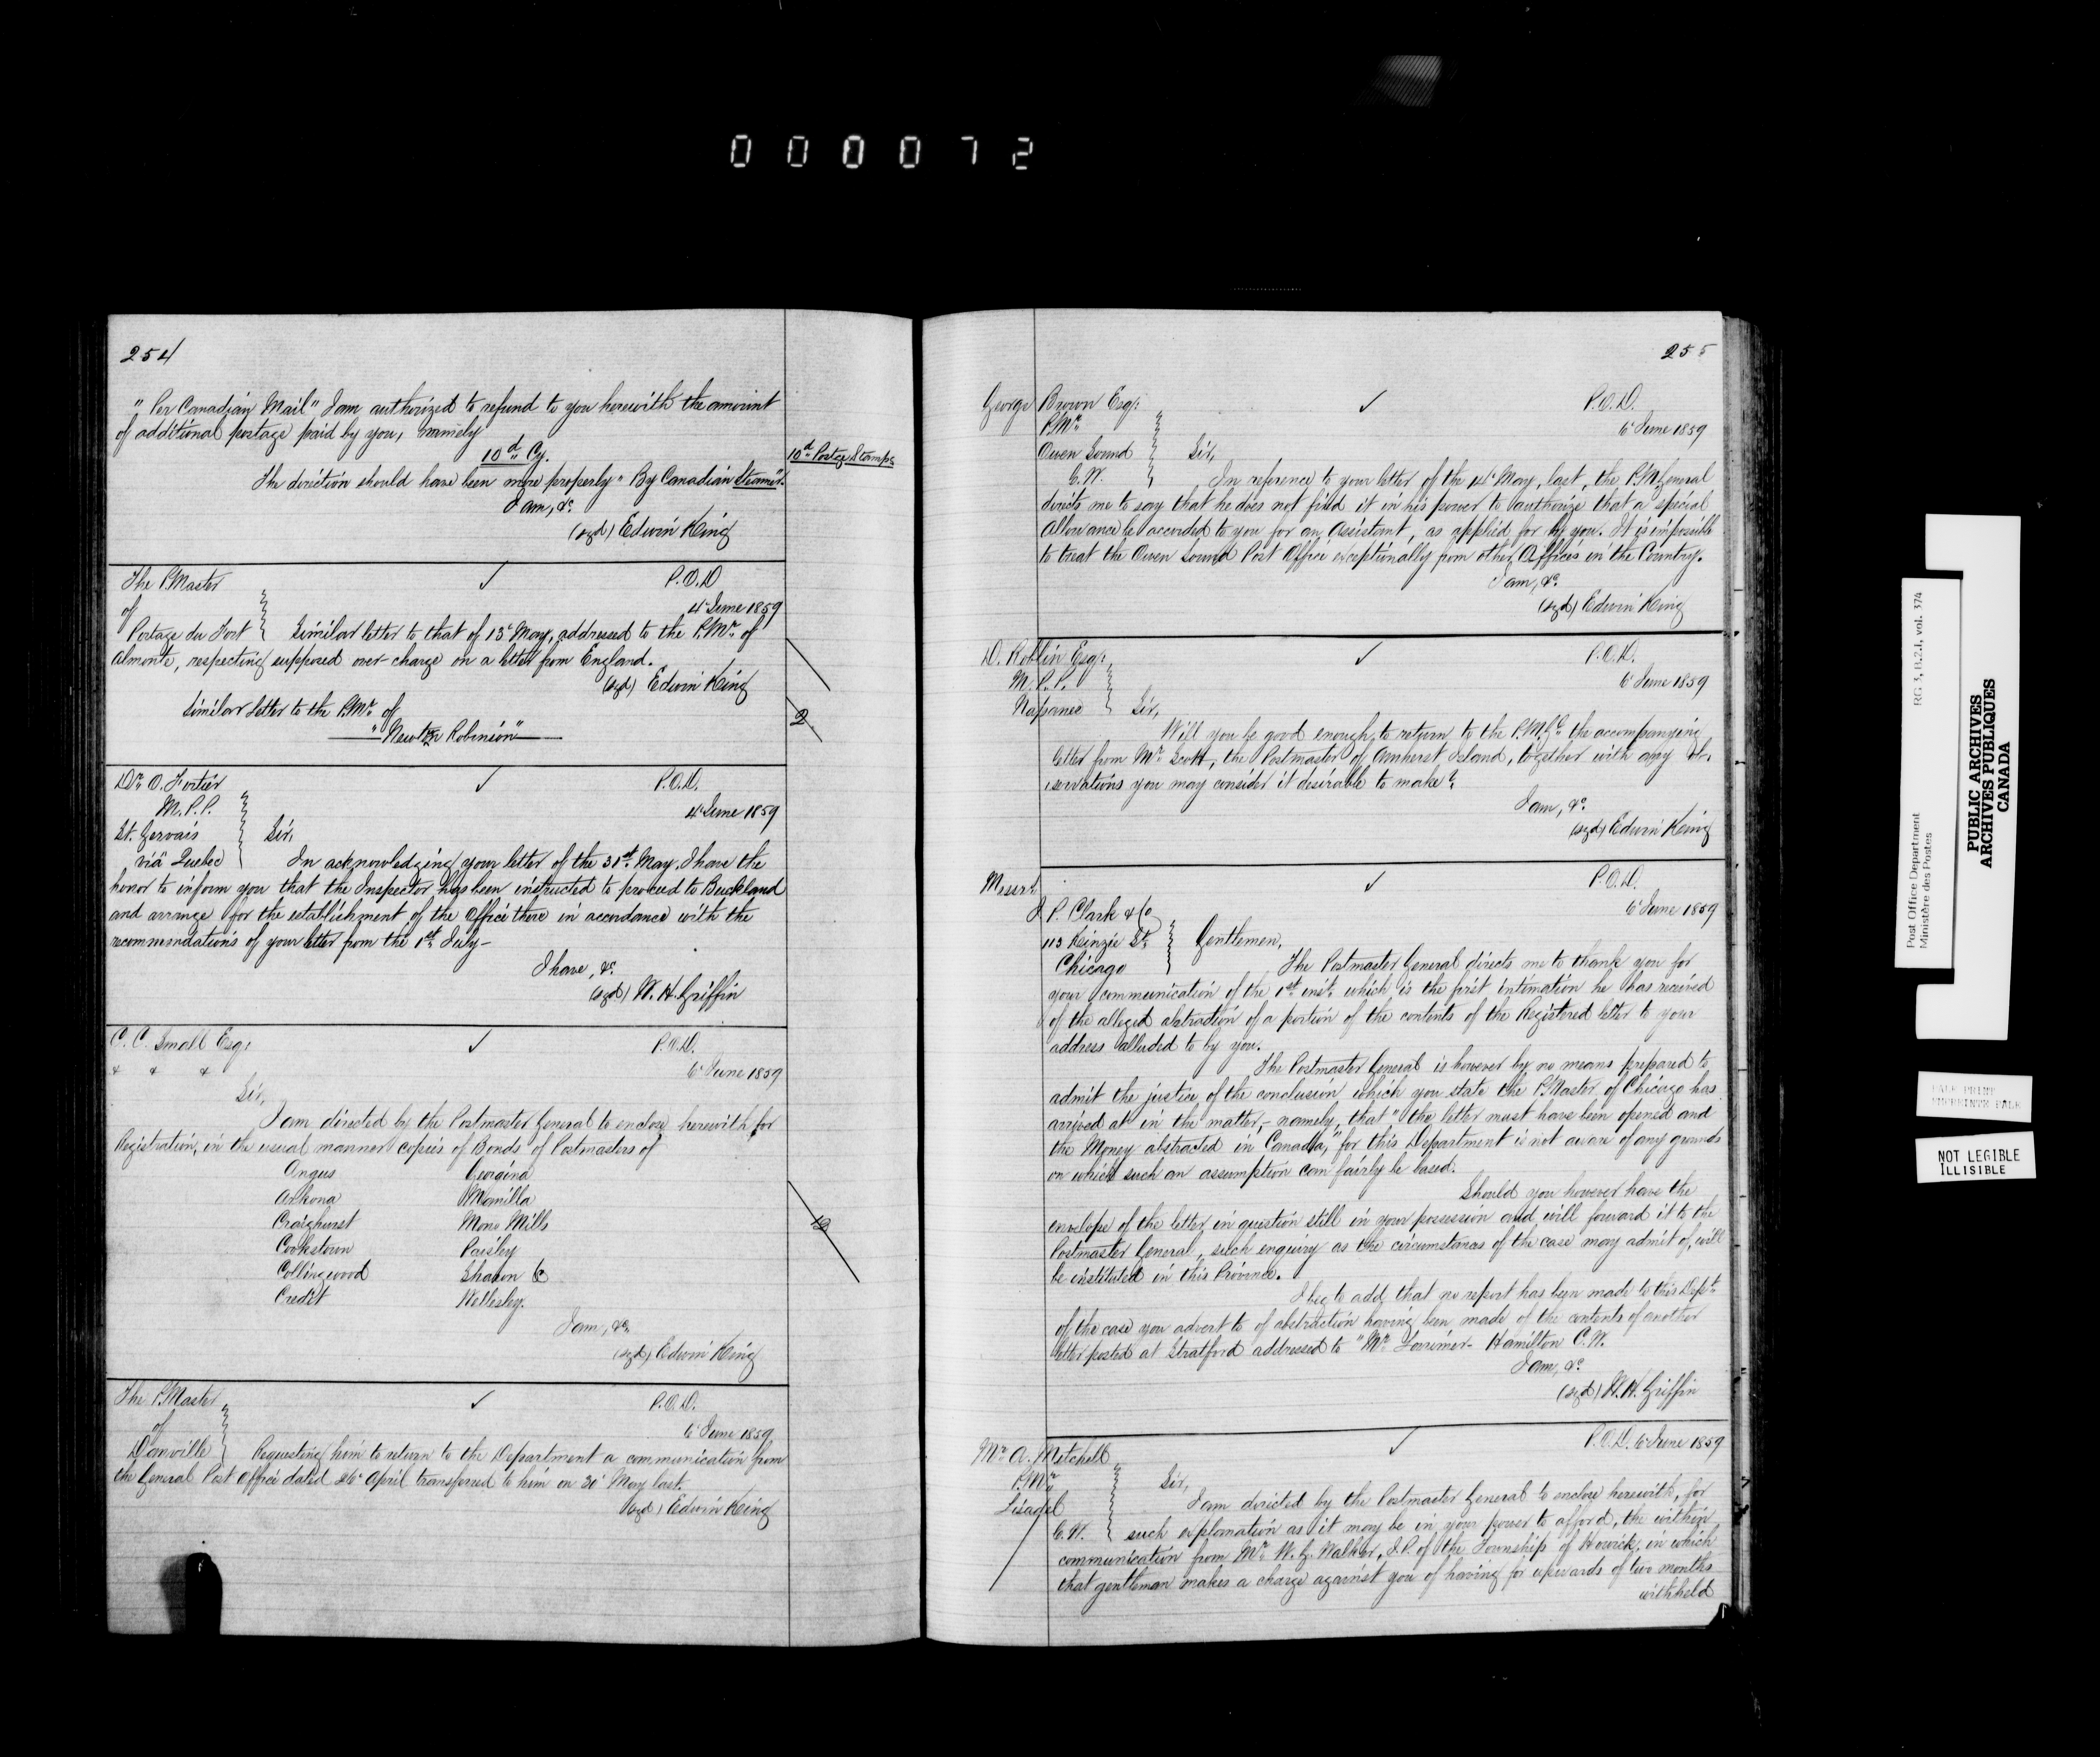 000072
254
" Per Canadian Mail " I am authorized to refund to you herewith the amount
of additional postage paid by you, namely
10d Cy.
10d Postge Stamps
The direction should have been more properly " By Canadian Steamer".
I am, &c
(sgd) Edwin King
The P.Master
of
Portage du Fort
P.O.D
4 June 1859
Similar letter to that of 13 May, addressed to the P.Mr of
Almonte, respecting supposed over-charge on a letter from England.
(sgd) Edwin King
Similar letter to the P.Mr of
" Newton Robinson "
2
Dr O. Fortier
M.P.P.
St. Gervais
viâ Quebec
P.O.D.
4 June 1859
Sir,
In acknowledging your letter of the 31st May, I have the
honor to inform you that the Inspector has been instructed to proceed to Buckland
and arrange for the establishment of the Office there in accordance with the
recommendations of your letter from the 1st July-
I have, &c
(sgd) W. H. Griffin
C. C. Small Esqr
& & &
P.O.D.
6 June 1859
Sir,
I am directed by the Postmaster General to enclose herewith for
Registration, in the usual manner copies of Bonds of Postmasters of
Angus Georgina
Arkona Manilla
Craighurst Mono Mills
Cookstown Paisley
Collingwood Sharon
Credit Wellesley.
12
I am, &c
(sgd) Edwin King
The P.Master
of
Danville
P.O.D.
6 June 1859
Requesting him to return to the Department a communication from
the General Post Office dated 26 April transferred to him on 30 May last.
(sgd) Edwin King
255
George Brown Esqr
P.Mr
Owen Sound
C.W.
P.O.D.
6 June 1859
Sir,
In reference to your letter of the 14 May, last, the P.M.General
directs me to say that he does not find it in his power to authorize that a special
Allowance be accorded to you for an Assistant, as applied for by you. It is impossible
to treat the Owen Sound Post Office exceptionally from other Offices in the Country.
I am, &c
(sgd) Edwin King
D. Roblin Esqr
M.P.P.
Napanee
P.O.D.
6 June 1859
Sir,
Will you be good enough to return to the P.M.Gl the accompanying
letter from Mr Scott, the Postmaster of Amherst Island, together with any ob-
servations you may consider it desirable to make?
I am, &c
(sgd) Edwin King
Messrs
J. P. Clark & Co
113 Kinzie St
Chicago
P.O.D.
6 June 1859
Gentlemen,
The Postmaster General directs me to thank you for
your communication of the 1st inst. which is the first intimation he has received
of the alleged abstraction of a portion of the contents of the Registered letter to your
address alluded to by you.
The Postmaster General is however by no means prepared to
admit the justice of the conclusion, which you state the P.Master of Chicago has
arrived at in the matter,- namely, that " the letter must have been opened and
the Money abstracted in Canada," for this Department is not aware of any grounds
on which such an assumption can fairly be based.
Should you however have the
envelope of the letter in question still in your possession and will forward it to the
Postmaster General, such enquiry as the circumstances of the case may admit of, will
be instituted in this Province.
I beg to add, that no report has been made to this Dept
of the case you advert to of abstraction having been made of the contents of another
letter posted at Stratford addressed to " Mr Lorrimer- Hamilton C.W.
I am, &c
(sgd) W. H. Griffin
Mr A. Mitchell
P.Mr
Lisadel
C.W.
P.O.D. 6 June 1859
Sir,
I am directed by the Postmaster General to enclose herewith, for
such explanation as it may be in your power to afford, the within
communication from Mr W. G. Walker, J.P. of the Township of Howick, in which
that gentleman makes a charge against you of having for upwards of two months
withheld
Post Office Department
Ministère des Postes
RG 3, B.2.1, vol. 374
PUBLIC ARCHIVES
ARCHIVES PUBLIQUES
CANADA
PALE PRINT
IMPRIMÉE PALE
NOT LEGIBLE
ILLISIBLE